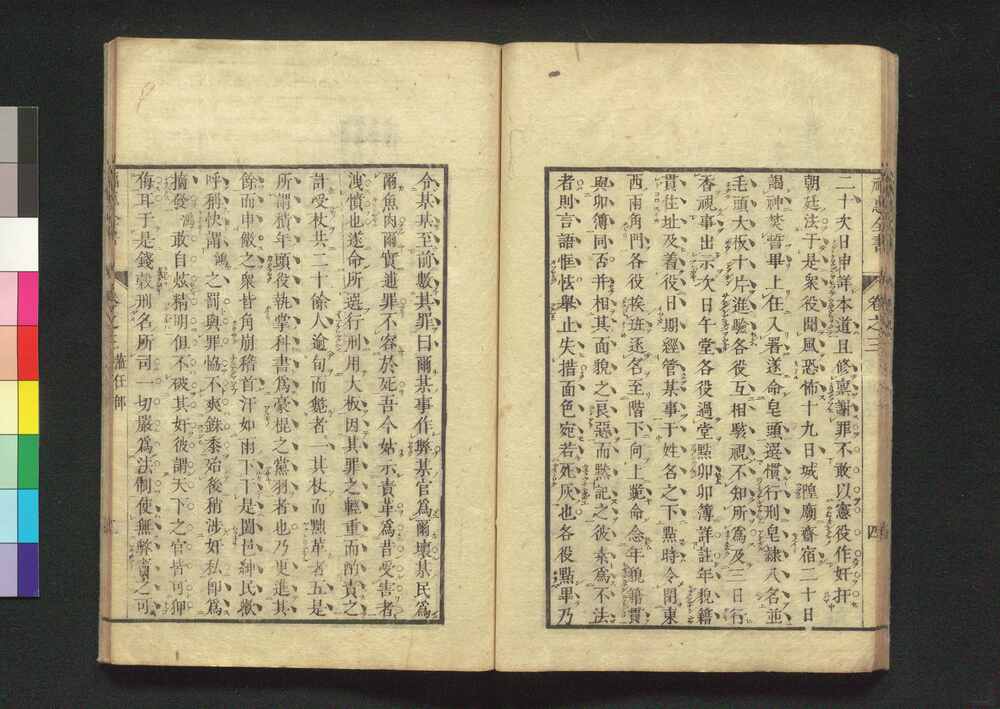 二十次日申詳本道且修稟謝罪不敢以憲役作奸扞
朝廷法于是衆役聞風恐怖十九日城隍廟齋宿二十日
謁神焚誓畢上任入署遂命皂頭選慣行刑皂隷八名並
毛頭大板十片進驗各役互相駭視不知所爲及三日行
香視事出示次日午堂各役過堂點卯卯簿詳註年貌籍
貫住址及着役日期經管某事于姓名之下點時令閉東
西兩角門各役挨班逐名至階下向上跪命念年貌籍貫
與卯簿同否并相其面貌之良惡而默記之彼素爲不法
者則言語恇怯舉止失措面色宛若死灰也各役點畢乃
福惠全書
卷之三
四
令某某至前數其罪曰爾某事作弊某官爲爾壞某民爲
爾魚肉爾實逋罪不容於死吾今姑示責革爲昔受害者
洩憤也遂命所選行刑用大板因其罪之輕重而酌責之
計受杖共二十餘人逾旬而斃者二其杖而黜革者五是
所謂積年頭役執掌科書爲豪棍之黨羽者也乃更進其
餘而申儆之衆皆角崩稽首汗如雨下于是闔邑紳民歡
呼稱快謂鴻之罰與罪恊不爽錙黍殆後稍渉奸私卽爲
摘發鴻敢自炫精明但不破其奸彼謂天下之官皆可狎
侮耳于是錢穀刑名所司一切嚴爲法制使無弊竇之可
卷之三
莅任部